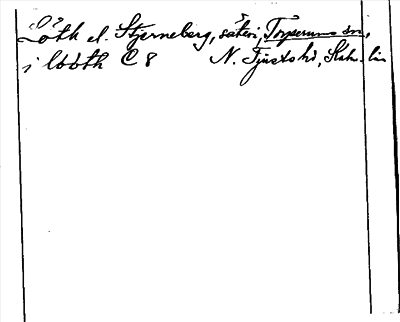 Lööth el. Stjerneberg, säteri, Torperums sn,
i lööth C 8 N. Tjusts hd, Kalm. län